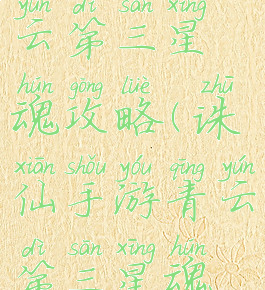 yún dì sān xīng
云第三星
hún gōng lüè zhū
魂攻略(诛
xiān shǒu yóu qīng yún
仙手游青云
dì sān xīng hún
第三星魂